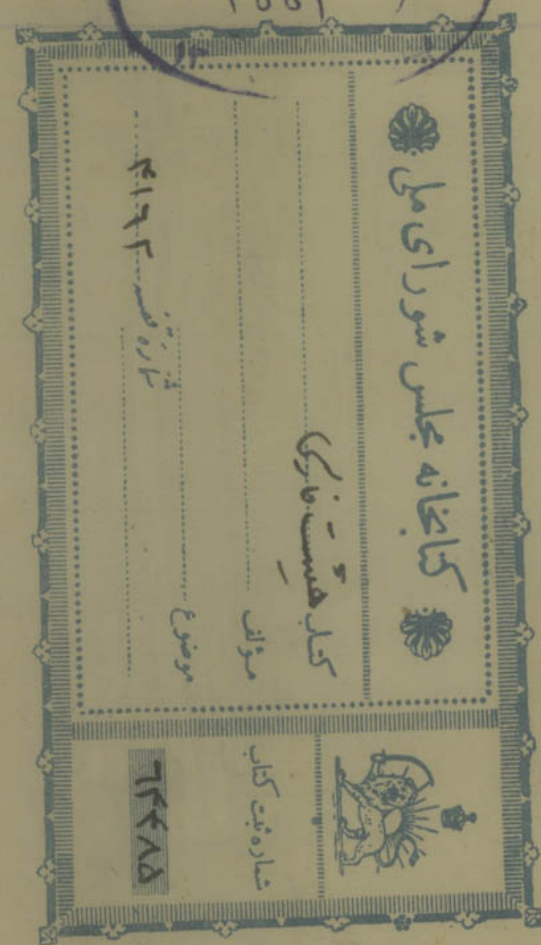 کتابخانه مجلس شورای ملی
کتاب هیئت فارسی
مؤلف
موضوع
شماره قفسه ۴۱۶۲
شماره ثبت کتاب
۶۴۴۸۵